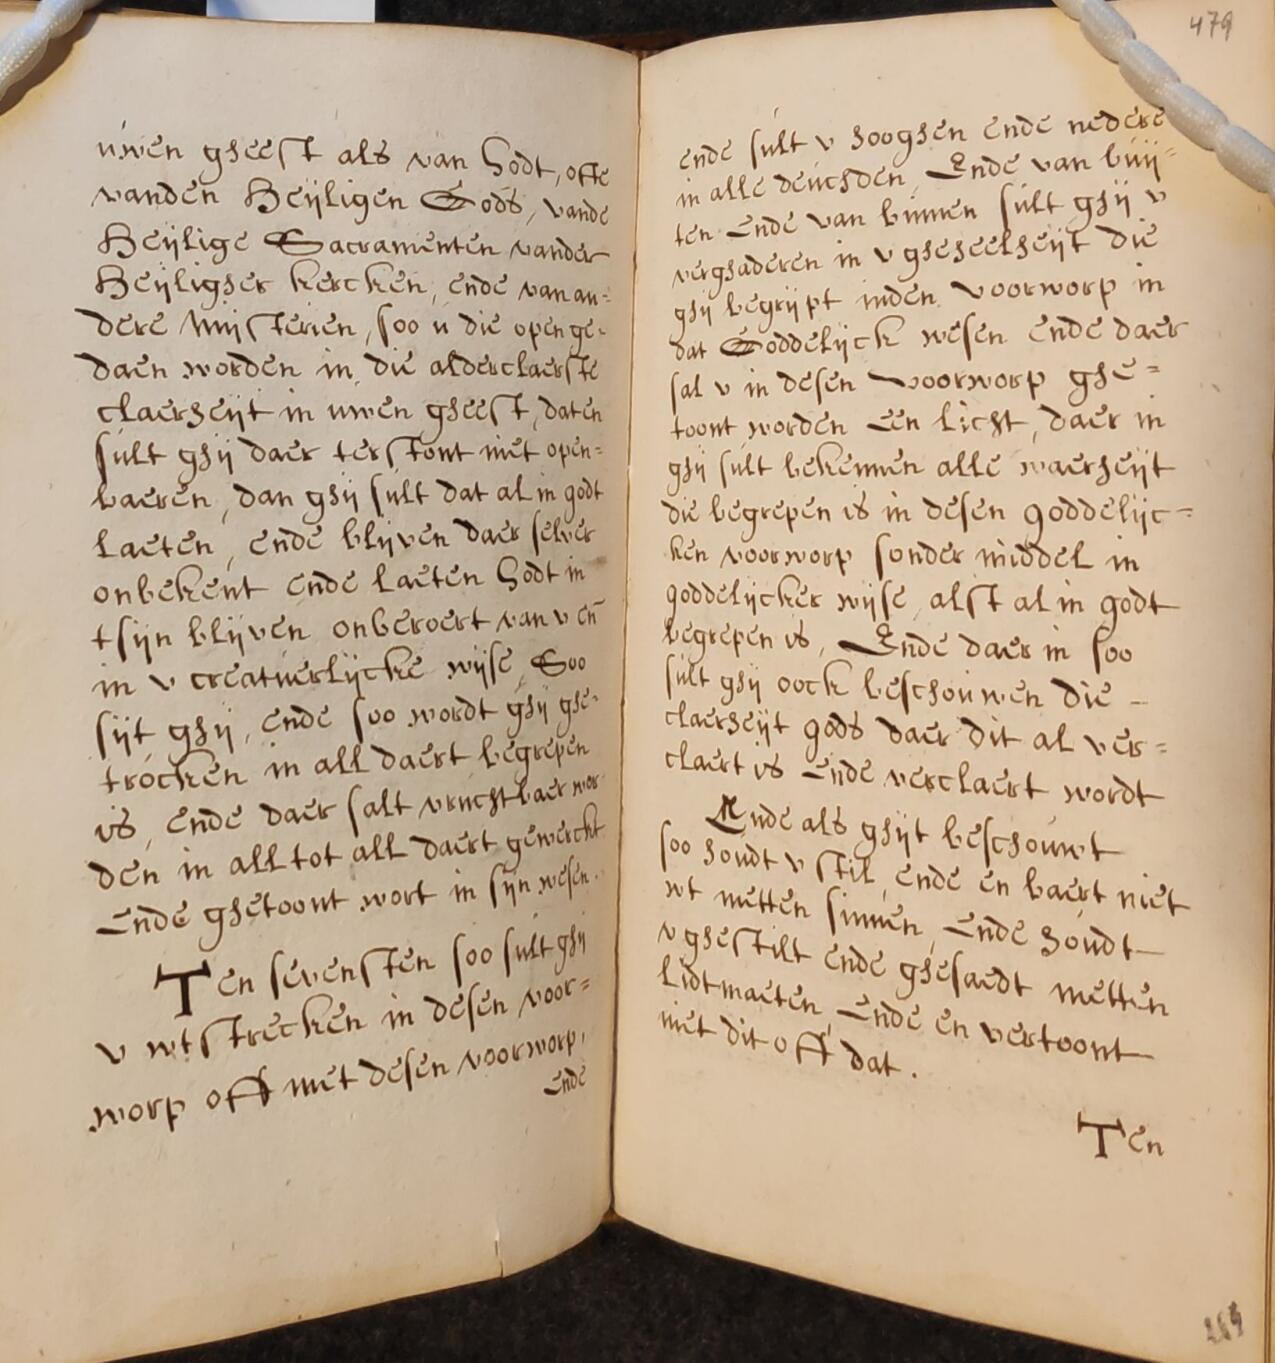 uwen gheest als van Godt, ofte
vanden Heijligen Gods, vande
Heijlige Sacramenten vander
Heijligher kercken, ende van an=
dere Mijsterien, soo u die open ge=
daen worden in die alderclaerste
claerheijt in uwen gheest, daten
sult ghij daer terstont niet open=
baeren, dan ghij sult dat al in godt
laeten, ende blijven daer selver
onbekent ende laeten Godt in
tsijn blijven onberoert van v en̄
in v creatuerlijcke wijse, Soo
sijt ghij, ende soo wordt ghij ghe=
trocken in all daert begrepen
is, ende daer salt vruchtbaer wor=
den in all tot all daert gewerckt
Ende ghetoont wort in sijn wesen.
Ten sevensten soo sult ghij
v wtstrecken in desen voor=
worp off met desen voorworp,
Ende
479
ende sult v hooghen ende nedere
in alle deuchden, Ende van buij=
ten Ende van binnen sult ghij v
verghaderen in v gheheelheijt die
ghij begrijpt inden voorworp in
dat Goddelijck wesen ende daer
sal v in desen voorworp ghe=
toont worden Een licht, daer in
ghij sult bekennen alle waerheijt
die begrepen is in desen goddelijc=
ken voorworp sonder middel in
goddelijcker wijse, alst al in godt
begrepen is, Ende daer in soo
sult ghij oock beschouwen die –
claerheijt gods daer dit al ver=
claert is Ende verclaert wordt
Ende als ghijt beschouwt
soo houdt v stil, ende en baert niet
wt metten sinnen, Ende houdt
v ghestilt ende ghesaedt metten
lidtmaeten, Ende en vertoont
niet dit off dat.
Ten